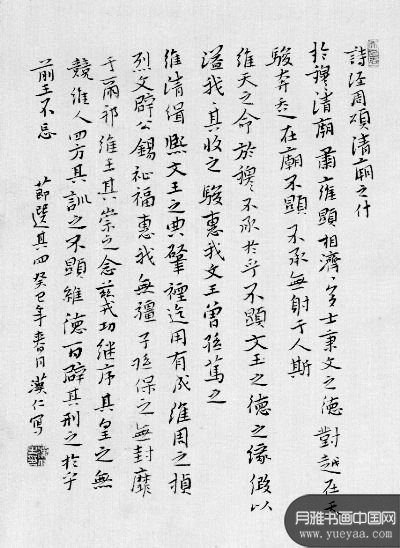 詩經周頌清廟之什
於穆清廟肅雝顯相濟濟多士秉文之德對越在天
駿奔走在廟不顯不承無射于人斯
維天之命於穆不承於乎不顯文王之德之假以
溢我其收之駿惠我文王曾孫篤之
維清緝熙文王之典肇禋迄用有成維周之禎
烈文辟公錫祉福惠我無疆子孫保之無封靡
于爾邦維王其崇之念茲戎功继序其皇之無
競維人四方其訓之不顯維德百辟其刑之於乎
前王不忘 節選其四癸巳年春月漢仁寫
月雅书画中国网
www.yueyaa.com